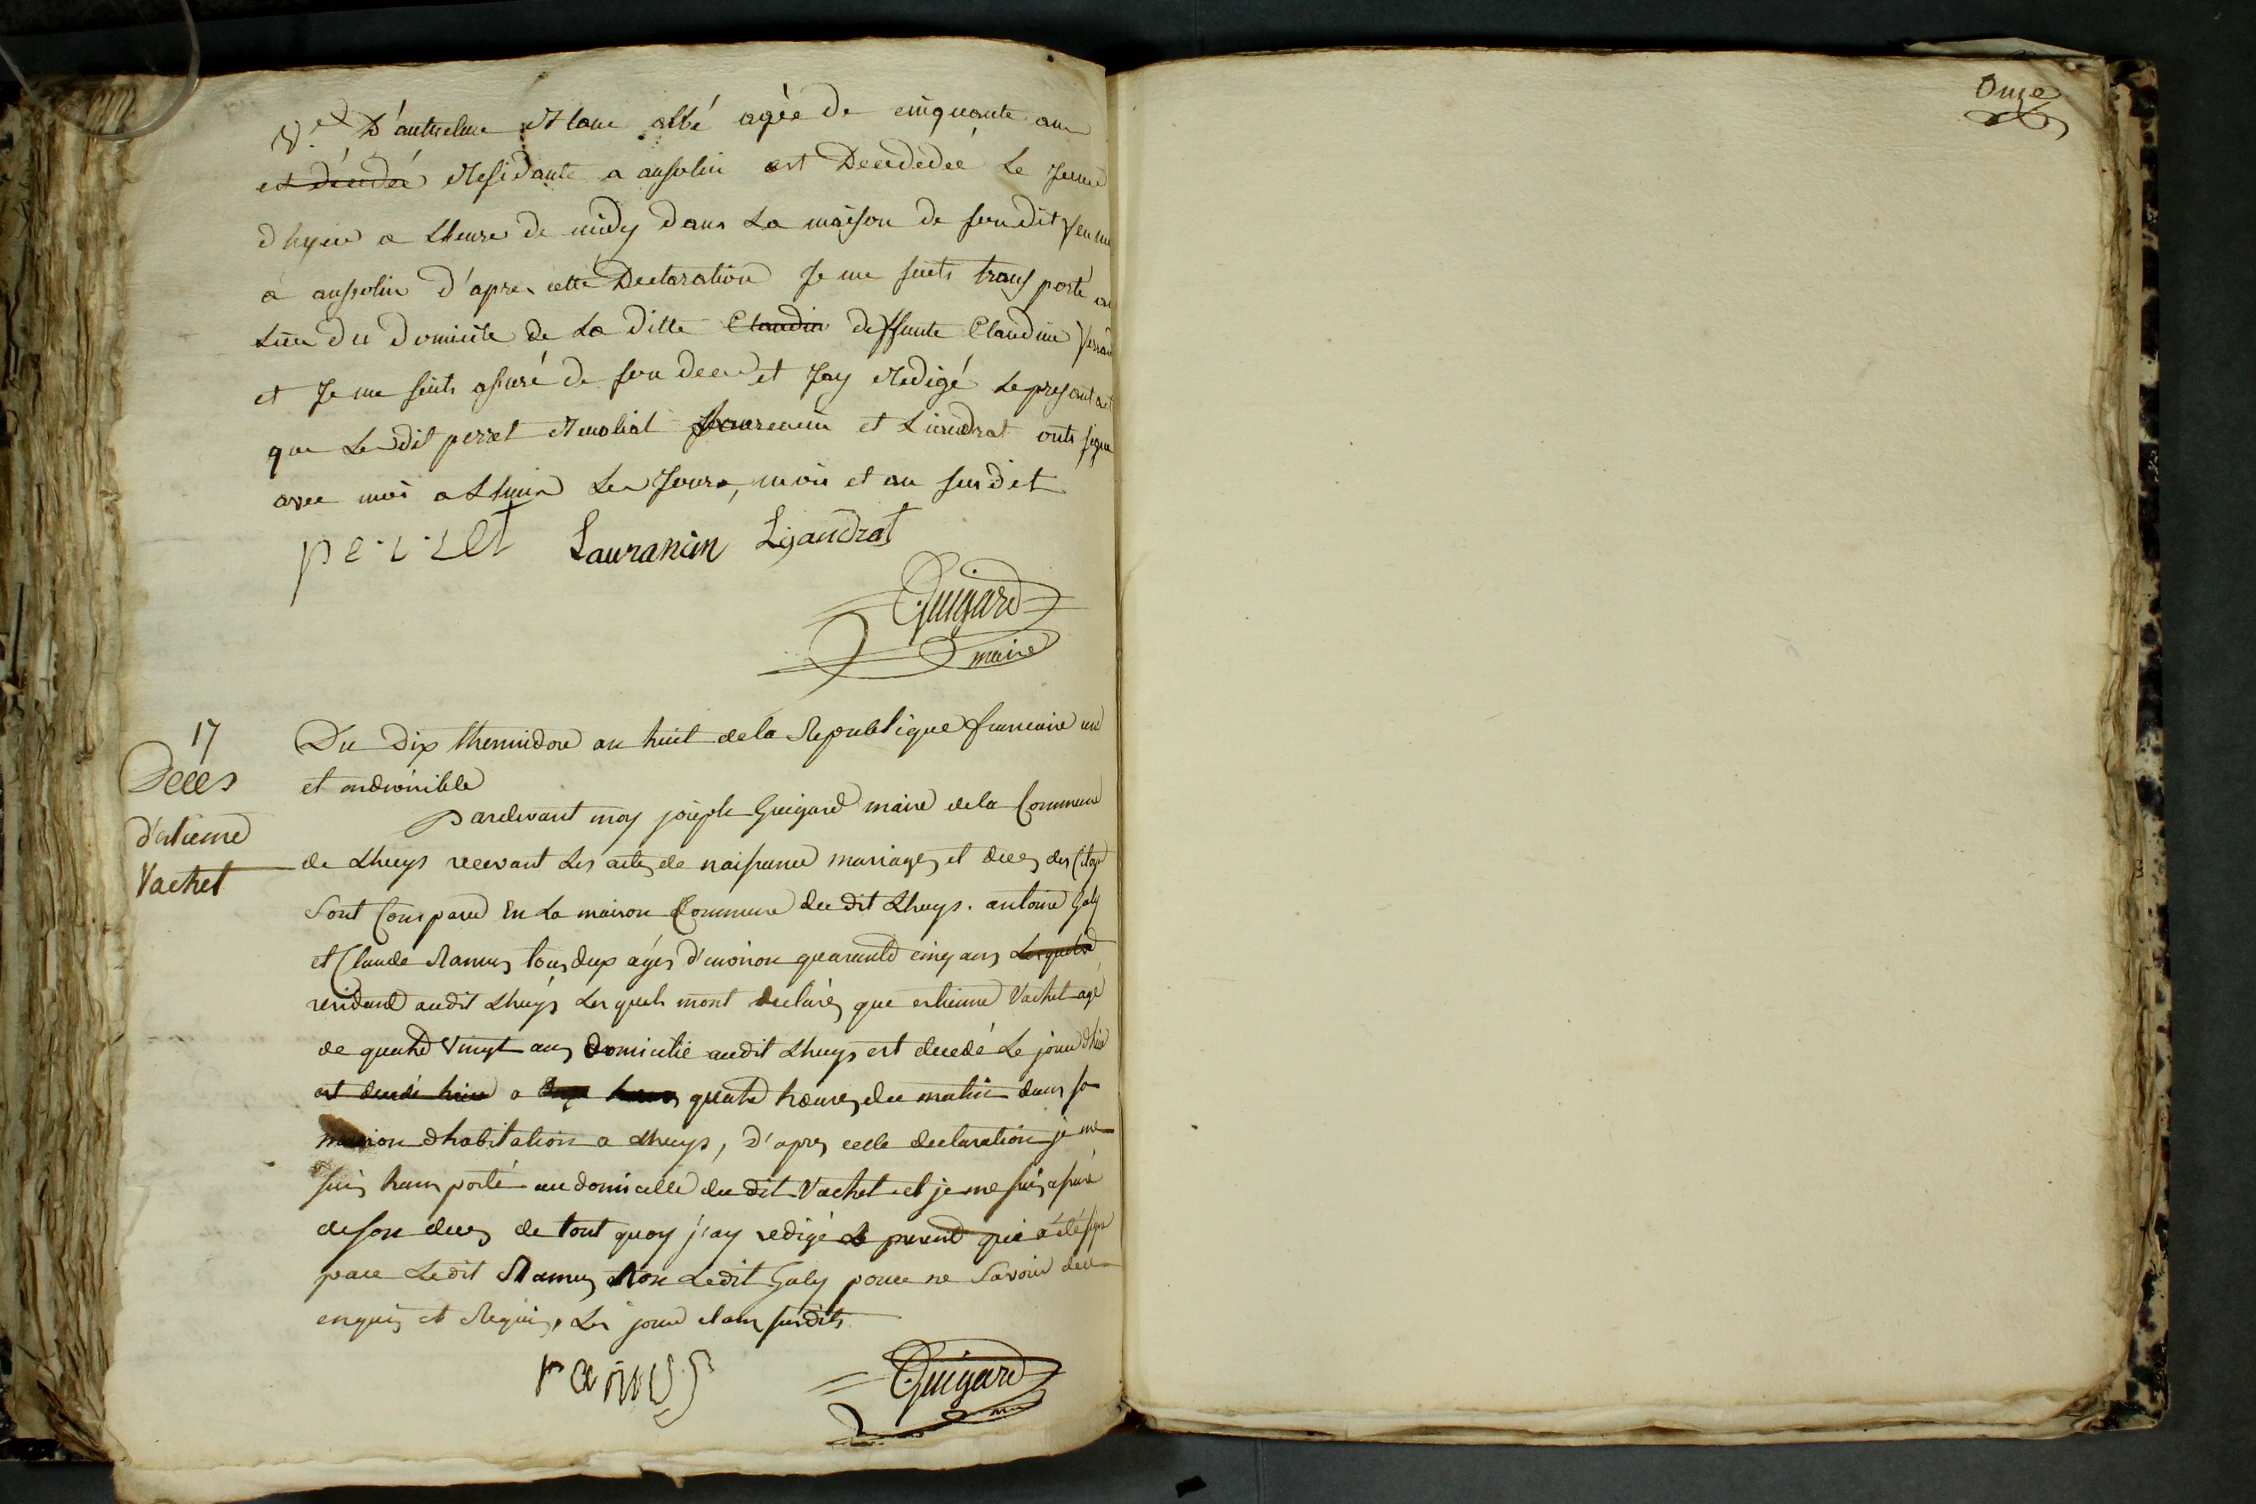 Onze
V.e D'antelme abbé agée de cinquante ans
est décédée Residante a ansolin est Decédeé Le Jour
d'hyer a Lheure de midy dans La maison de son dit
a ansolin d'apres cette Declaration Je me suits transporté au
Lieu du domicile de La ditte Claudin deffunte Claudine
et Je me suits assuré de son deces et Jay Redigé Le present act
que Le dit perret et Laurencin et Liandrat onts signe
avec moi a Lhuis Les Jour, mois et an susdit
perret Lauranсin Ligandrat
Guigard
maire
17
Décès
d'estienne
Vachet
Du Dix thermidore an huit de la Republique francaise une
et indivisible
Pardevant moy joseph Guigard maire de la Commune
de Lhuys recevant Les actes de naissance mariages et deces des Citoy
sont Comparu En La maison Commune du dit Lhuys. antoine Galy
et Claude Ramus tous deux agés d'environ quarante cinq ans Lesquels
residant audit Lhuys Lesquels mont declarés que estienne Vachet agé
de quatre Vingt ans Domicilié audit Lhuys est decedé Le jour d'hier
est decedé hier a quatre heures du matin dans sa
maison dhabitation a Lhuys, d'apres cette declaration je me
suis transporté au domicille du dit Vachet et je me suis assuré
de son deces de tout quoy j'ay redigé Le present qui a été signé
par Ledit Ramus Non Ledit Galy pour ne Savoir de ce
enquis et Requis, Les jour et an susdits
ramus
Guigard